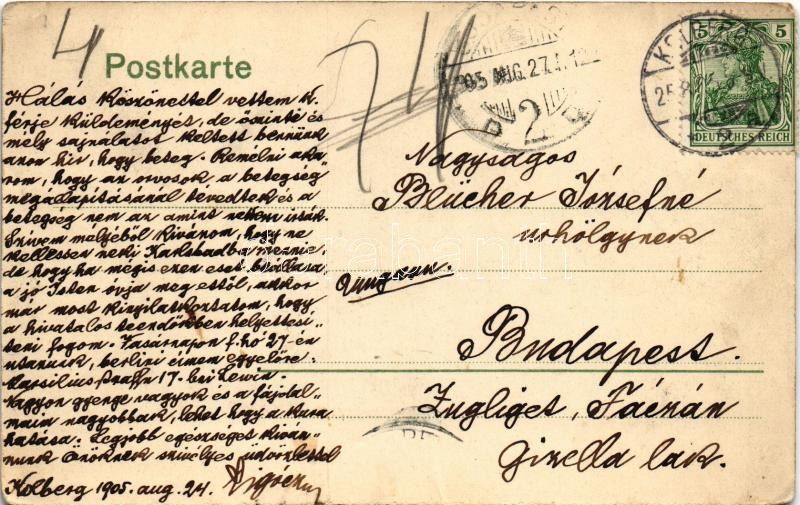 4
Postkarte
Hálás Köszönettel vettem K.
férje Küldeményét, de őszinte és
mély sajnálatot Keltett bennünk
azon hír, hogy beteg. Remélni aka-
rom, hogy az orvosok a betegség
megállapításánál tévedtek és a
betegség nem az amint nekem írták.
Szívem mélyéből Kívánom, hogy ne
Kellessen neki Karlsbadba mennie,
de hogy ha mégis ezen eset beállana
a jó Isten óvja meg ettől, akkor
már most Kinyilatkoztatom, hogy
a hivatalos teendőkben helyettesí-
teni fogom. Vasárnapon f. hó 27-én
utazunk, berlini címem egyelőre:
17. bei Lewin.
Nagyon gyenge vagyok és a fájdal-
maim nagyobbak, lehet hogy a Kura
hatása. Legjobb egészséget Kíván-
nunk Önöknek szívélyes üdvözlettel
Kolberg 1905. aug. 24.
905 AUG. 27.
2
KOLBERG
25.8
5 5
DEUTSCHES REICH
Nagyságos
Blücher Józsefné
úrhölgynek
Ungarn.
Budapest.
Zugliget, Fácán
Gizella lak.